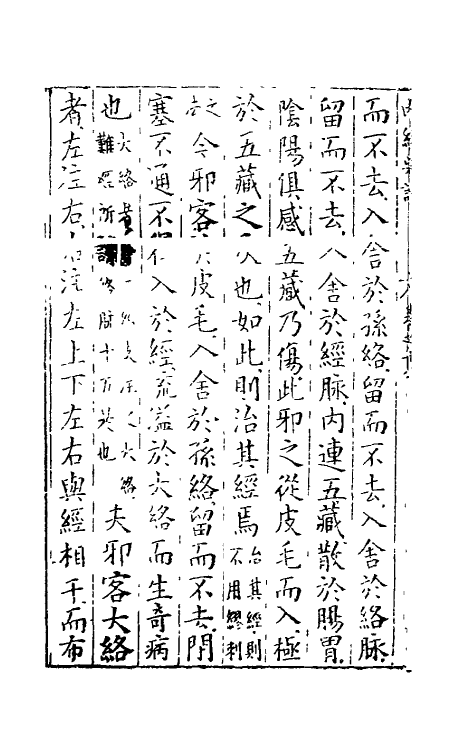 而不去入舍於孫絡留而不去入舍於絡脉
留而不去入舍於經脉内連五藏散於腸胃
陰陽俱感五藏乃傷此邪之從皮毛而入極
於五藏之次也如此則治其經焉治其經則不用繆刺
之今邪客於皮毛入舍於孫絡留而不去閉
塞不通不得入於經流溢於大絡而生奇病
也大絡大絡難經所脉十五也夫邪客大絡
者左注右右注左上下左右與經相干而布